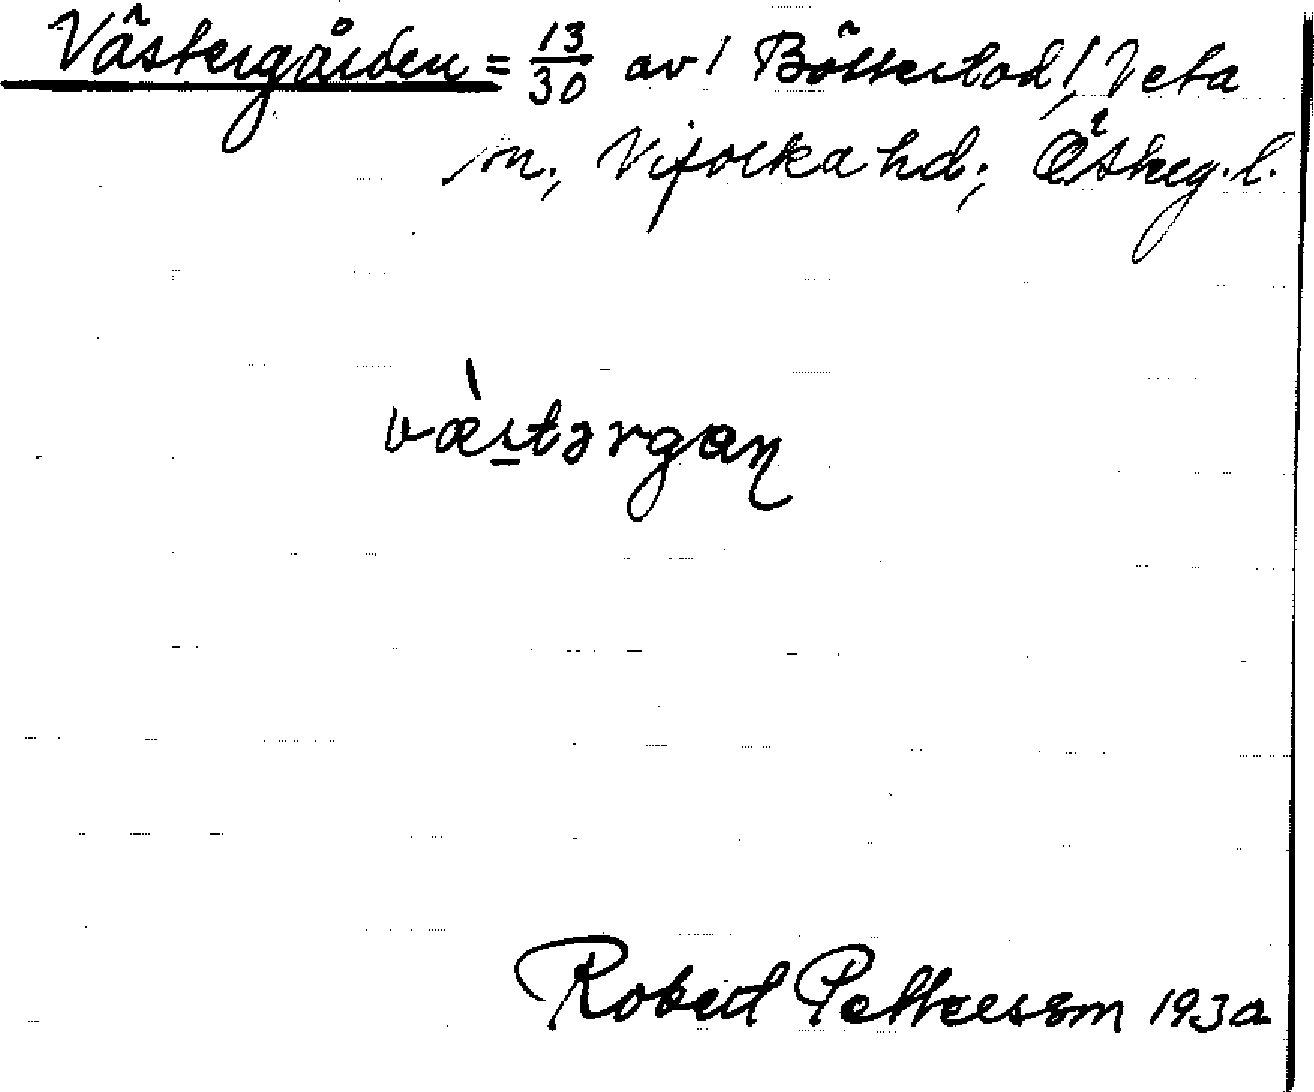 Västergården = 13/30 av 1 Bötterstad 1, Veta
sn., Vifolka hd; Österg. l.
væ̀stərgaɳ
Robert Pettersson 193